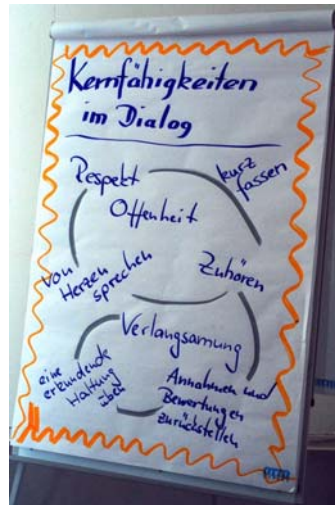 Kernfähigkeiten
im Dialog
Respekt
kurz
fassen
Offenheit
von
Herzen
sprechen
Zuhören
Verlangsamung
eine
erkundende
Haltung
üben
Annahmen und
Bewertungen
zurückstellen